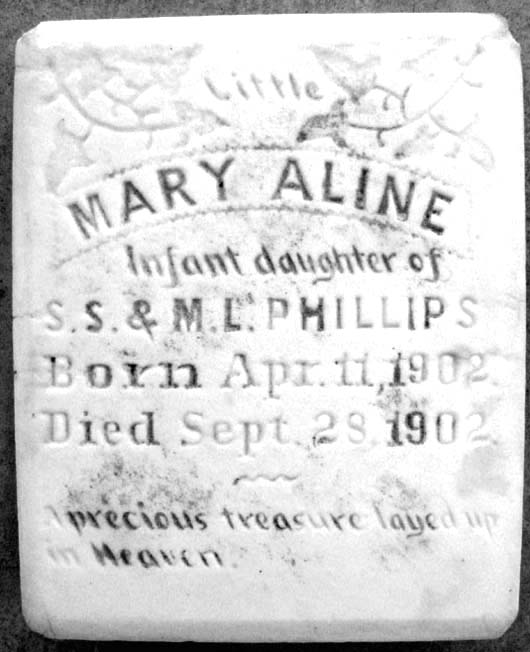 Little
MARY ALINE
Infant daughter of
S. S. & M. L. PHILLIPS
Born Apr. 11, 1902.
Died Sept. 28, 1902.
A precious treasure layed up
in Heaven.